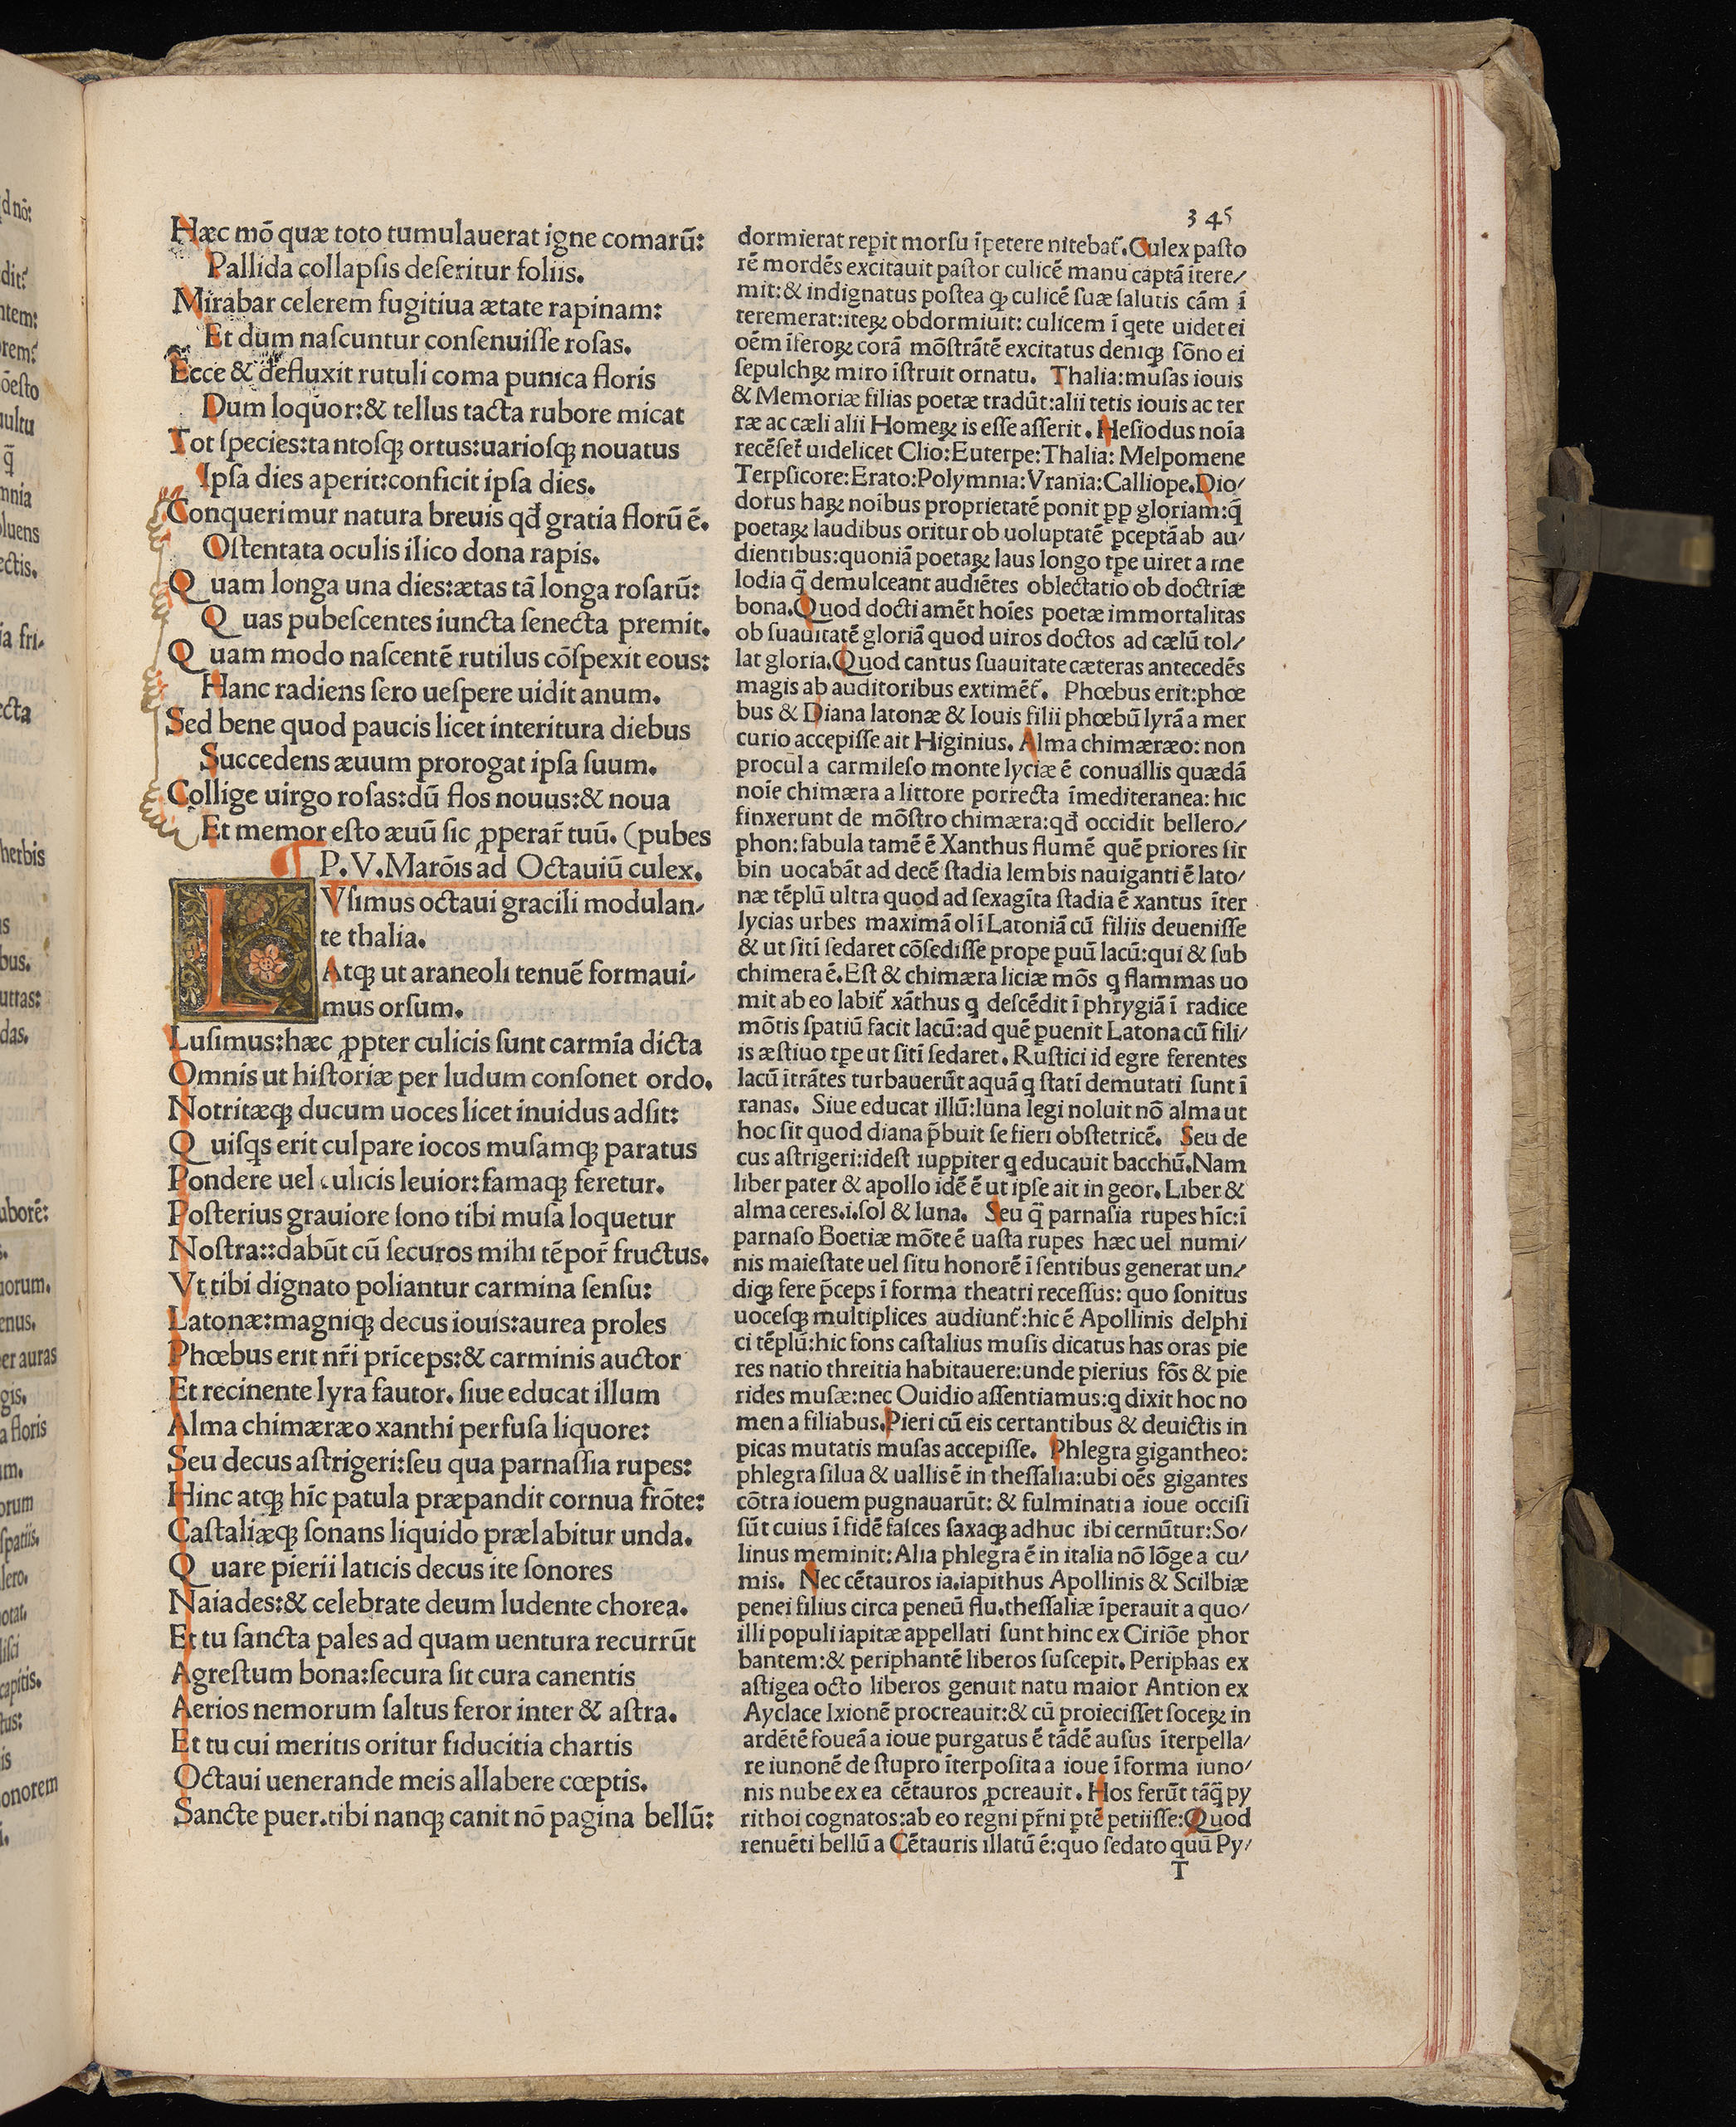 345
Hæc mō quæ toto tumulauerat igne comarū:
Pallida collapſis deſeritur foliis.
Mirabar celerem fugitiua ætate rapinam:
Et dum naſcuntur conſenuiſſe roſas.
Ecce & defluxit rutuli coma punica floris
Dum loquor:& tellus tacta rubore micat
Tot ſpecies:tantoſqꝫ ortus:uarioſqꝫ nouatus
Ipſa dies aperit:conficit ipſa dies.
Conquerimur natura breuis qđ gratia florū ē.
Oſtentata oculis ilico dona rapis.
Quam longa una dies:ætas tā longa roſarū:
Quas pubeſcentes iuncta ſenecta premit.
Quam modo naſcentē rutilus cōſpexit eous:
Hanc radiens ſero ueſpere uidit anum.
Sed bene quod paucis licet interitura diebus
Succedens æuum prorogat ipſa ſuum.
Collige uirgo roſas:dū flos nouus:& noua
Et memor eſto æuū ſic ꝓperar̄ tuū. (pubes
P.V.Marōis ad Octauiū culex.
LVſimus octaui gracili modulan/
te thalia.
Atqꝫ ut araneoli tenuē formaui/
mus orſum.
Luſimus:hæc ꝓpter culicis ſunt carmīa dicta
Omnis ut hiſtoriæ per ludum conſonet ordo.
Notritæqꝫ ducum uoces licet inuidus adſit:
Quiſqs erit culpare iocos muſamqꝫ paratus
Pondere uel culicis leuior:famaqꝫ feretur.
Poſterius grauiore ſono tibi muſa loquetur
Noſtra::dabūt cū ſecuros mihi tēpor̄ fructus.
Vt tibi dignato poliantur carmina ſenſu:
Latonæ:magniqꝫ decus iouis:aurea proles
Phœbus erit nr̄i prīceps:& carminis auctor
Et recinente lyra fautor. ſiue educat illum
Alma chimæræo xanthi perfuſa liquore:
Seu decus aſtrigeri:ſeu qua parnaſſia rupes:
Hinc atqꝫ hīc patula præpandit cornua frōte:
Caſtaliæqꝫ ſonans liquido prælabitur unda.
Quare pierii laticis decus ite ſonores
Naiades:& celebrate deum ludente chorea.
Et tu ſancta pales ad quam uentura recurrūt
Agreſtum bona:ſecura ſit cura canentis
Aerios nemorum ſaltus feror inter & aſtra.
Et tu cui meritis oritur fiducitia chartis
Octaui uenerande meis allabere cœptis.
Sancte puer.tibi nanqꝫ canit nō pagina bellū:
dormierat repit morſu īpetere nitebat᷑.Culex paſto
rē mordēs excitauit paſtor culicē manu captā ītere/
mit:& indignatus poſtea qꝫ culicē ſuæ ſalutis cām ī
teremerat:iteꝝ obdormiuit: culicem ī qete uidet ei
oēm īferoꝝ corā mōſtrātē excitatus deniqꝫ ſōno ei
ſepulchꝝ miro īſtruit ornatu. Thalia:muſas iouis
& Memoriæ filias poetæ tradūt:alii tetis iouis ac ter
ræ ac cæli alii Homeꝝ is eſſe aſſerit. Heſiodus noīa
recēſet᷑ uidelicet Clio:Euterpe:Thalia: Melpomene
Terpſicore:Erato:Polymnia:Vrania:Calliope.Dio/
dorus haꝝ noībus proprietatē ponit ꝓp gloriam:q̄
poetaꝝ laudibus oritur ob uoluptatē ꝑceptā ab au/
dientibus:quoniā poetaꝝ laus longo tꝑe uiret a me
lodia q̄ demulceant audiētes oblectatio ob doctrīæ
bona.Quod docti amēt hoīes poetæ immortalitas
ob ſuauitatē gloriā quod uiros doctos ad cælū tol/
lat gloria.Quod cantus ſuauitate cæteras antecedēs
magis ab auditoribus extimēt᷑. Phœbus erit:phœ
bus & Diana latonæ & Iouis filii phœbū lyrā a mer
curio accepiſſe ait Higinius. Alma chimæræo: non
procul a carmileſo monte lyciæ ē conuallis quædā
noīe chimæra a littore porrecta īmediteranea: hic
finxerunt de mōſtro chimæra:qđ occidit bellero/
phon:fabula tamē ē Xanthus flumē quē priores ſir
bin uocabāt ad decē ſtadia lembis nauiganti ē lato/
næ tēplū ultra quod ad ſexagīta ſtadia ē xantus īter
lycias urbes maximā olī Latoniā cū filiis deueniſſe
& ut ſitī ſedaret cōſediſſe prope ꝑuū lacū:qui & ſub
chimera ē.Eſt & chimæra liciæ mōs q flammas uo
mit ab eo labit᷑ xāthus q deſcēdit ī phrygiā ī radice
mōtis ſpatiū facit lacū:ad quē ꝑuenit Latona cū fili/
is æſtiuo tꝑe ut ſitī ſedaret. Ruſtici id egre ferentes
lacū ītrātes turbauerūt aquā q ſtatī demutati ſunt ī
ranas. Siue educat illū:luna legi noluit nō alma ut
hoc ſit quod diana p̄buit ſe fieri obſtetricē. Seu de
cus aſtrigeri:ideſt iuppiter q educauit bacchū.Nam
liber pater & apollo idē ē ut ipſe ait in geor. Liber &
alma ceres.i.ſol & luna. Seu q̄ parnaſia rupes hīc:ī
parnaſo Boetiæ mōte ē uaſta rupes hæc uel numi/
nis maieſtate uel ſitu honorē ī ſentibus generat un/
diqꝫ fere p̄ceps ī forma theatri receſſus: quo ſonitus
uoceſqꝫ multiplices audiunt᷑:hic ē Apollinis delphi
ci tēplū:hic fons caſtalius muſis dicatus has oras pie
res natio threitia habitauere:unde pierius fōs & pie
rides muſæ:nec Ouidio aſſentiamus:q dixit hoc no
men a filiabus.Pieri cū eis certantibus & deuictis in
picas mutatis muſas accepiſſe. Phlegra gigantheo:
phlegra ſilua & uallis ē in theſſalia:ubi oēs gigantes
cōtra iouem pugnauarūt: & fulminati a ioue occiſi
ſūt cuius ī fidē faſces ſaxaqꝫ adhuc ibi cernūtur:So/
linus meminit:Alia phlegra ē in italia nō lōge a cu/
mis. Nec cētauros ia.iapithus Apollinis & Scilbiæ
penei filius circa peneū flu.theſſaliæ īperauit a quo/
illi populi iapitæ appellati ſunt hinc ex Ciriōe phor
bantem:& periphantē liberos ſuſcepit. Periphas ex
aſtigea octo liberos genuit natu maior Antion ex
Ayclace Ixionē procreauit:& cū proieciſſet ſoceꝝ in
ardētē foueā a ioue purgatus ē tādē auſus īterpella/
re iunonē de ſtupro īterpoſita a ioue ī forma iuno/
nis nube ex ea cētauros ꝓcreauit. Hos ferūt tāq̄ py
rithoi cognatos:ab eo regni pr̄ni ptē petiiſſe:Quod
renuēti bellū a Cētauris illatū ē:quo ſedato quū Py/
T